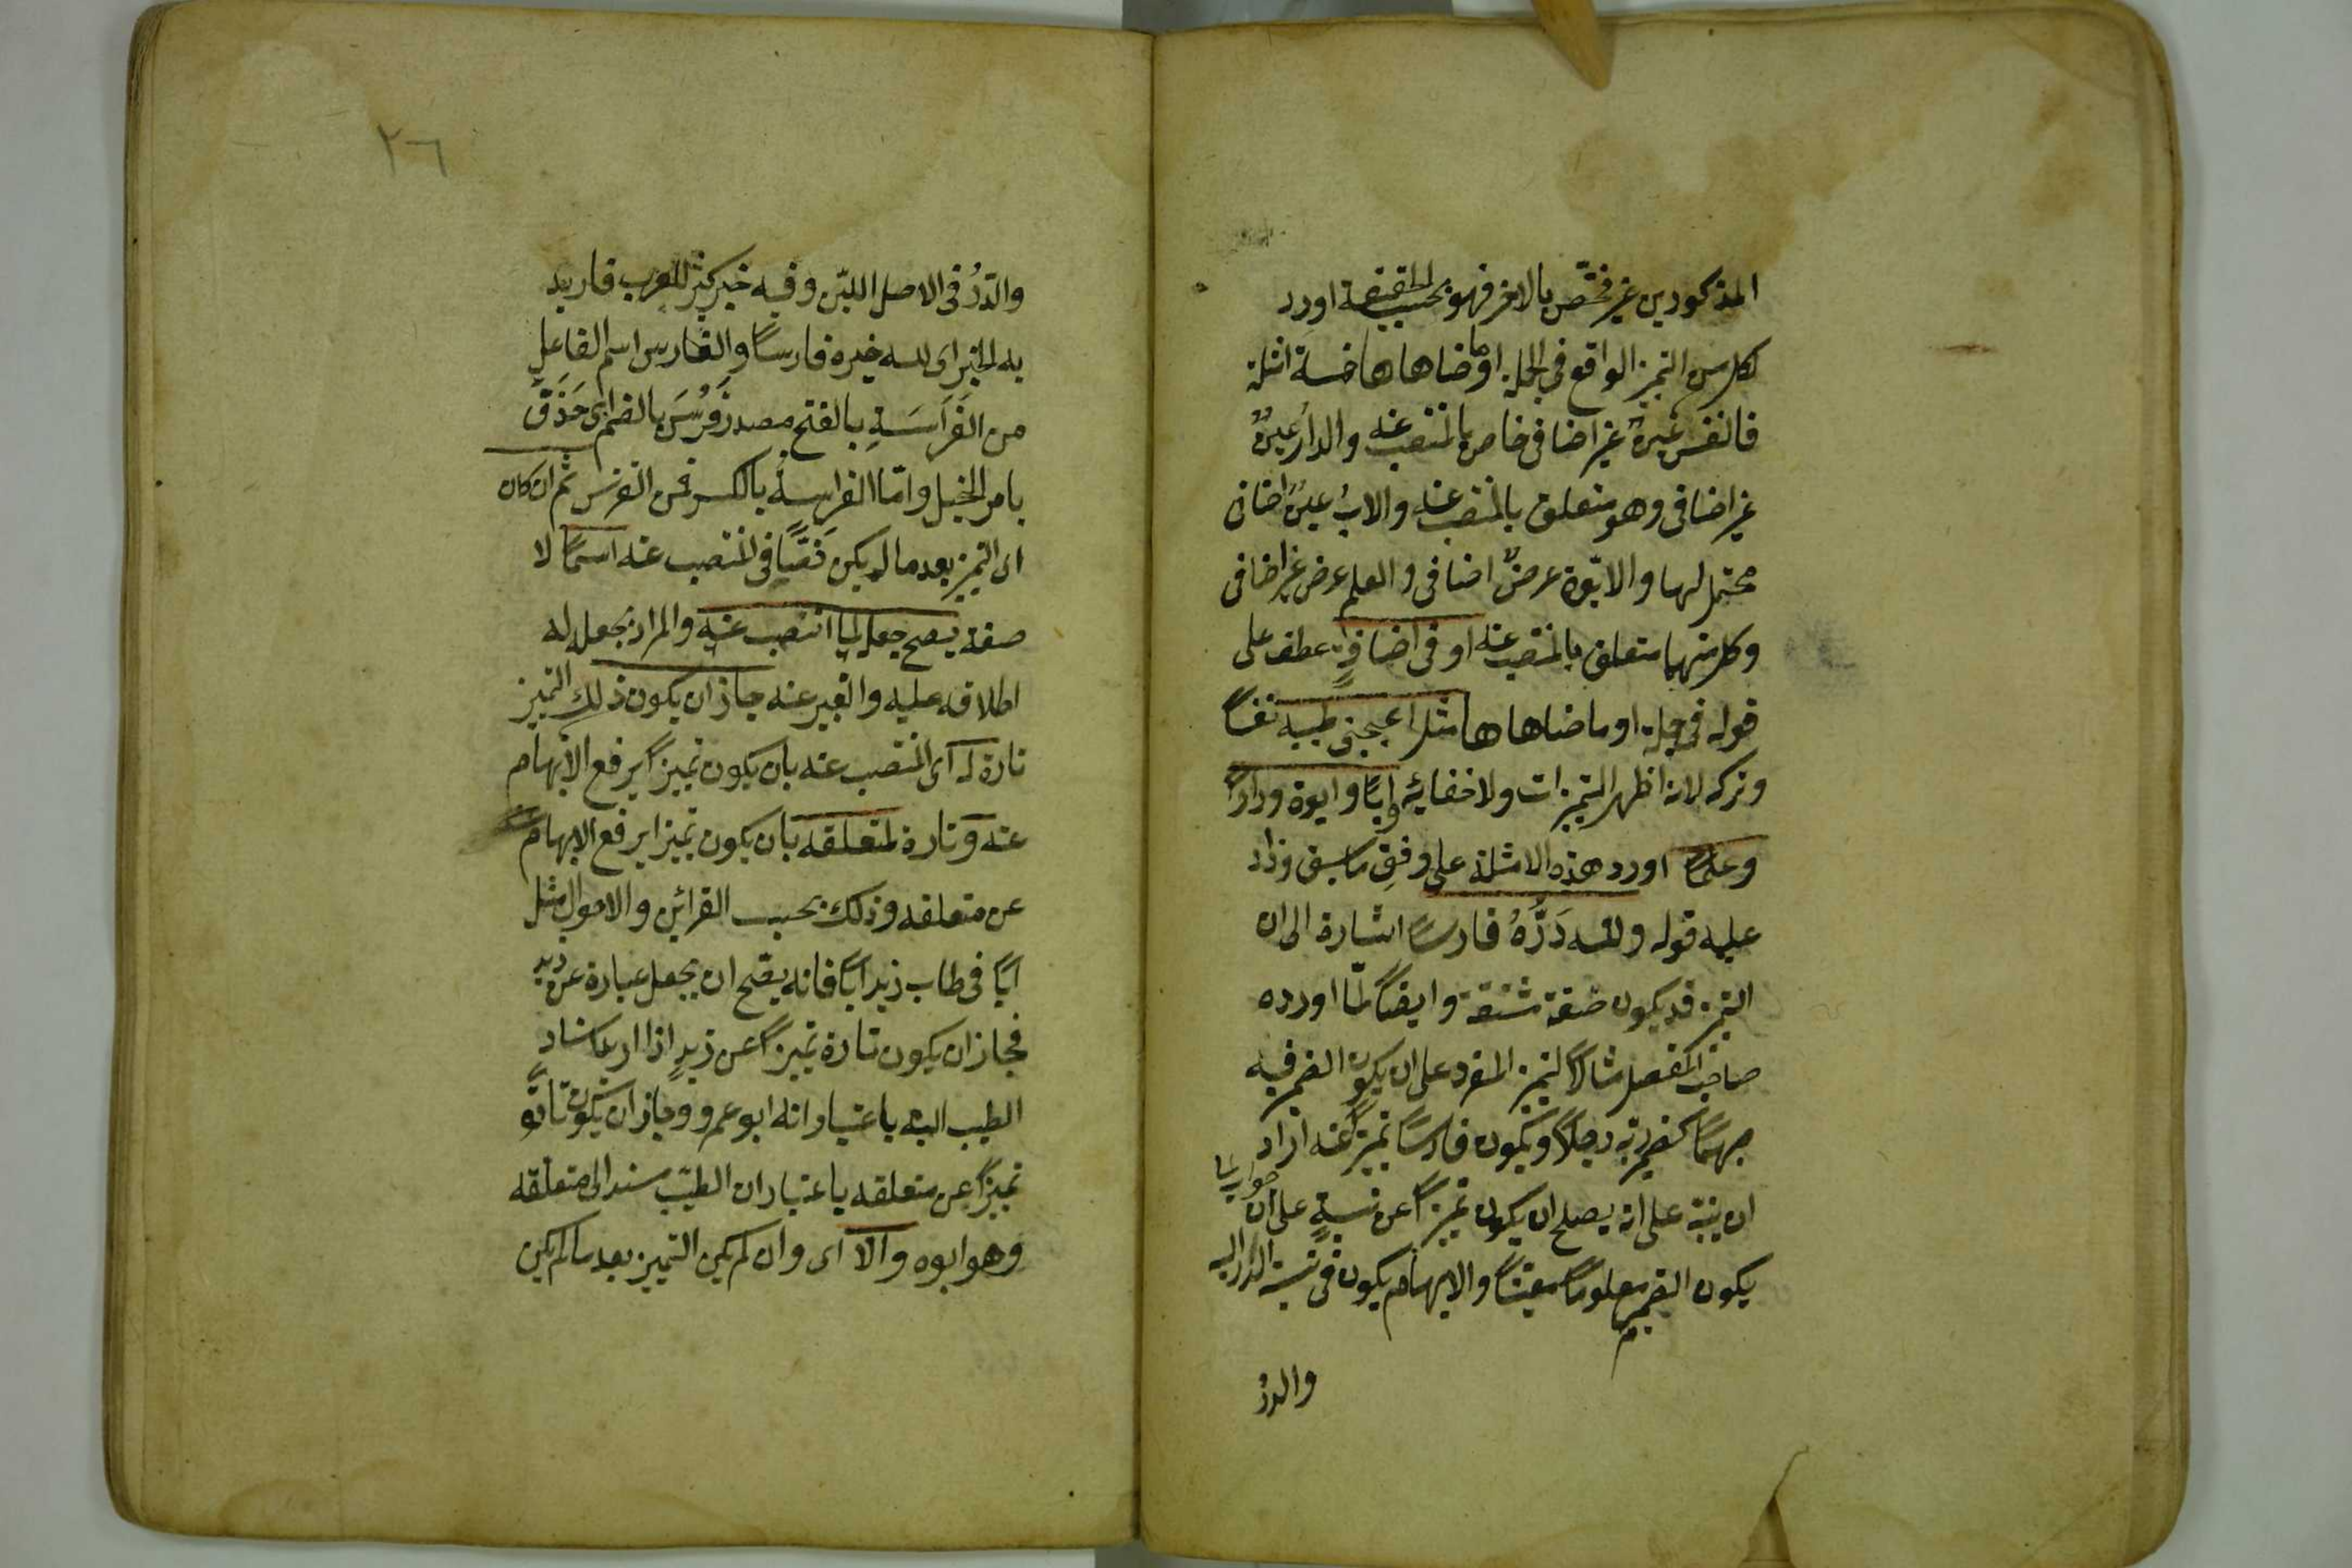 المذكورين غير مختص بالاخر فهو بحسب الحقيقة اورد
لكل من التميز الواقع في الجملة او ما ضاهاها خمسة امثلة
فالنفس عينٌ غير اضافى خاص بالمنتصب عنه والدارُ عينٌ
غير اضافى وهو متعلق بالمنتصب عنه والابُ عينٌ اضافى
محتمل لهما والابوّة عرضٌ اضافى والعلم عرض غير اضافى
وكل منهما متعلق بالمنتصب عنه او فى اضافةٍ عطف على
قوله فى جملة او ما ضاهاها مثل اعجبنى طيبه نفسًا
وتركه لانه اظهر التميزات ولا خفاء به وابًا وابوة ودارًا
وعلمًا اورد هذه الامثلة على وفق ما سبق وزاد
عليه قوله ولله دَرُّهُ فارسًا اشارة الى ان
التميز قد يكون صفة مشتقة وايضًا لمّا اورده
صاحب المفصل مثالًا لتميز المفرد على ان يكون الضمير فيه
مبهمًا كضمير ربه رجلًا ويكون فارسًا تميزًا عنه اراد
ان ينبّه على انه يصلح ان يكون تميزًا عن نسبةٍ على ان
يكون الضمير معلومًا معيّنًا والابهام يكون فى نسبة الدر اليه
والدرُ
٢٦
والدّرُ فى الاصل اللبن وفيه خير كثير للعرب فاريد
به الخير اى لله خيره فارسًا والفارس اسم الفاعلِ
من الفَرَاسَةِ بالفتح مصدر فَرُسَ بالضم اى حَذَقَ
بامر الخيل وامّا الفراسةُ بالكسر فمن التفرس ثم ان كان
اى التميز بعد ما لم يكن نصًّا فى المنتصب عنه اسمًا لا
صفة يصح جعله لما انتصب عنه والمراد بجعله له
اطلاقه عليه والتعبير عنه جاز ان يكون ذلك التميز
تارة له اى المنتصب عنه بان يكون تميزًا يرفع الابهام
عنه وتارة لمتعلقه بان يكون تميزا يرفع الابهام
عن متعلقه وذلك بحسب القرائن والاحوال مثل
ابًا فى طاب زيد ابًا فانه يصّح ان يجعل عبارة عن زيد
فجاز ان يكون تارة تميزًا عن زيدٍ اذا اريد اسناد
الطيب اليه باعتبار انه ابو عمرو وجاز ان يكون تارة
تميزًا عن متعلقه باعتبار ان الطيب مسند الى متعلقه
وهو ابوه والّا اى وان لم يكن التميز بعد ما لم يكن